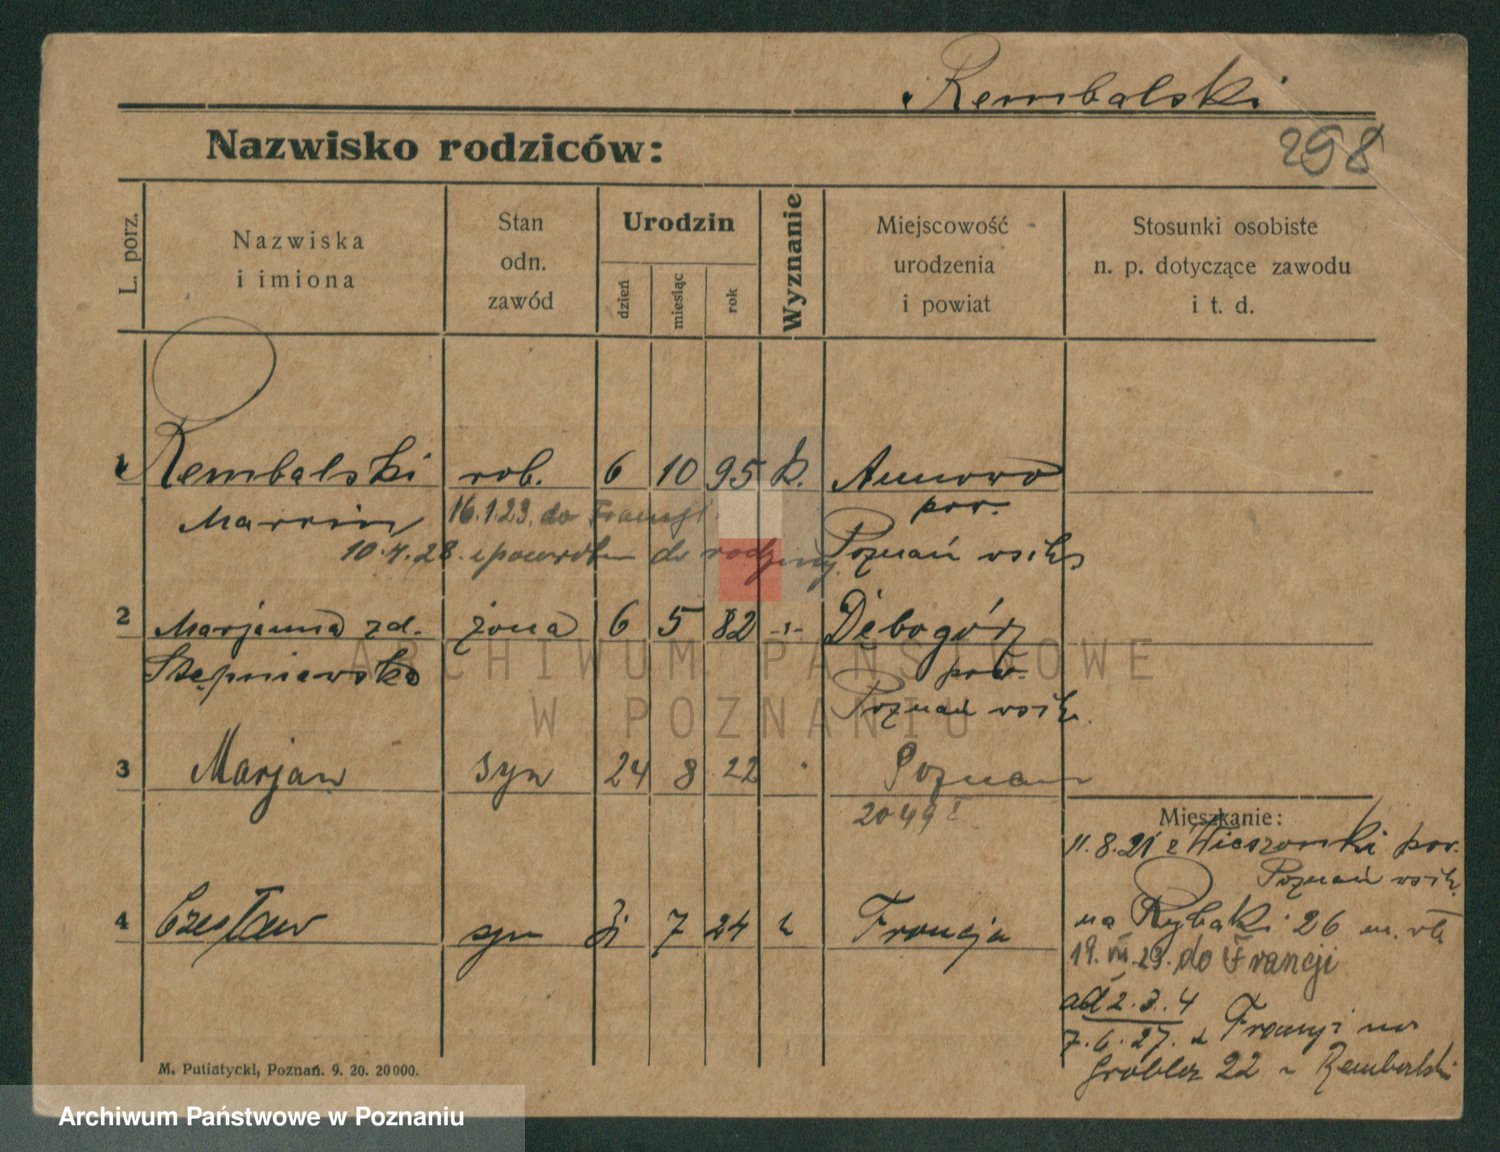 Rembalski
298
Nazwisko rodziców:
L. porz.
Nazwiska
i imiona
Stan
odn.
zawód
Urodzin
dzień
miesiąc
rok
Wyznanie
Miejscowość
urodzenia
i powiat
Stosunki osobiste
n. p. dotyczące zawodu
i t. d.
1 Rembalski rob. 6 10 95 k.
Marcin 16.1.23. do Francji pow.
10.4.28. do rodziny Poznań wsch
2 Marjanna zd. żona 6 5 82 -"- Dębogóra
Stępniewska pow.
Poznań wsch.
3 Marjan syn 24 8 22 Poznań
2049
4 Czesław syn 7 24 Francja
Mieszkanie:
11.8.21 z pow.
Poznań wsch.
na Rybaki 26
19. 23. do Francji
ad 2. 3. 4
7.6.27. z Francji na
Grobla 22 Rembalski
M. Putiatycki, Poznań. 9. 20. 20000.
ARCHIWUM PAŃSTWOWE
W POZNANIU
Archiwum Państwowe w Poznaniu